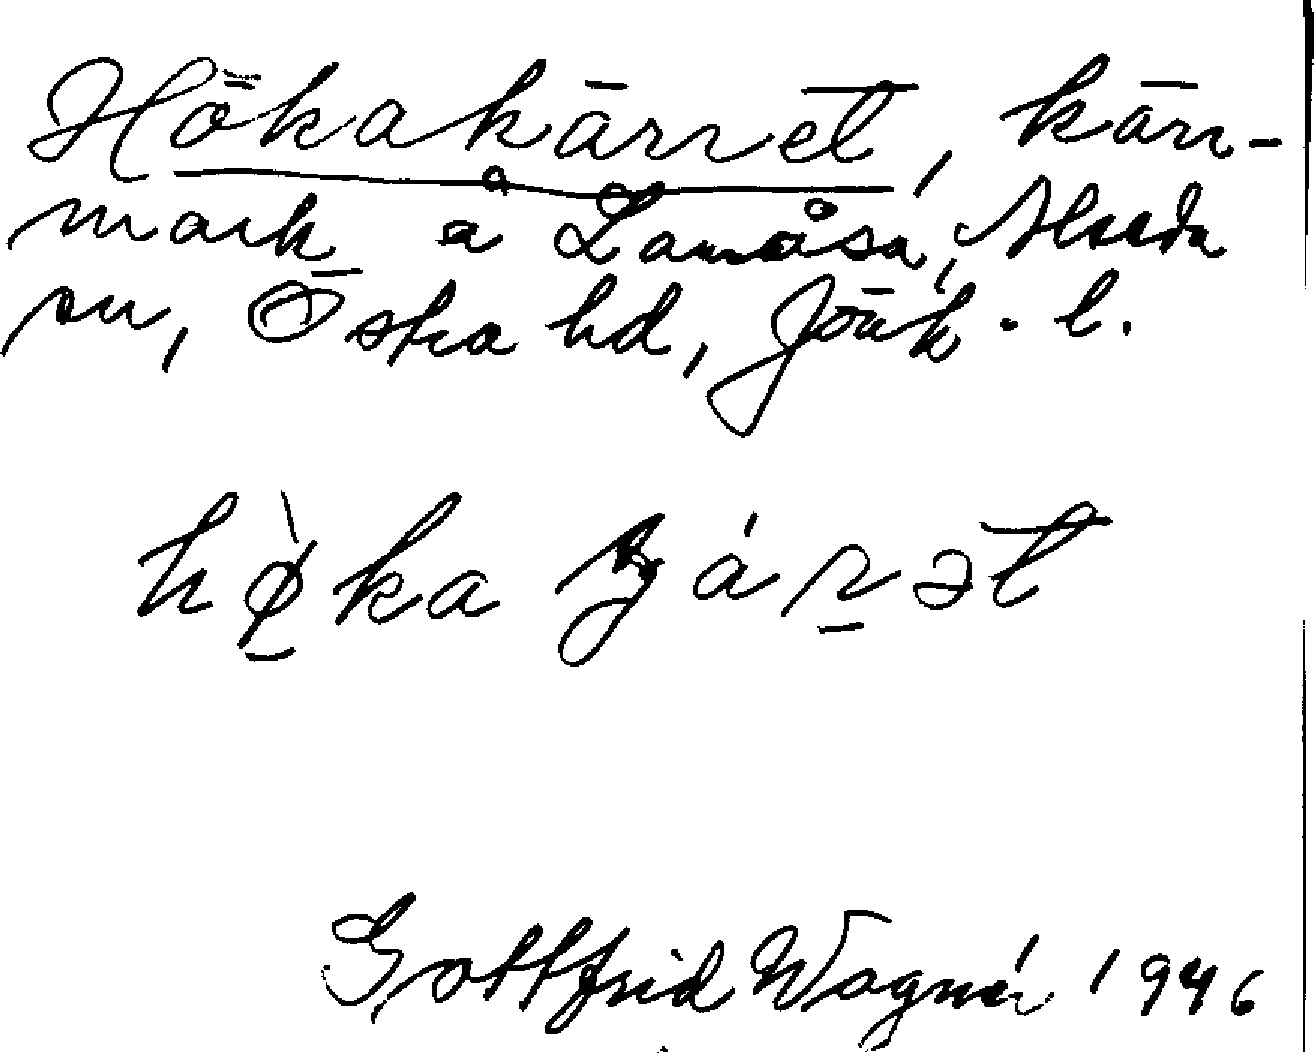 Hökakärret, kärr-
mark å Lamåsa, Alseda
sn, Östra hd, Jönk. l.
Gottfrid Wagnér 1946